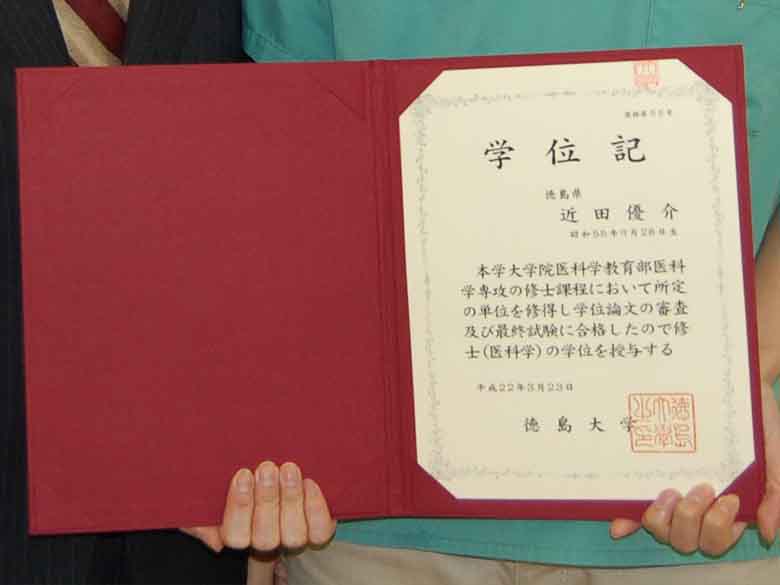 学位記
徳島県
近田優介
昭和56年11月26日生
本学大学院医科学教育部医科
学専攻の修士課程において所定
の単位を修得し学位論文の審査
及び最終試験に合格したので修
士(医科学)の学位を授与する
平成22年3月23日
徳島大学